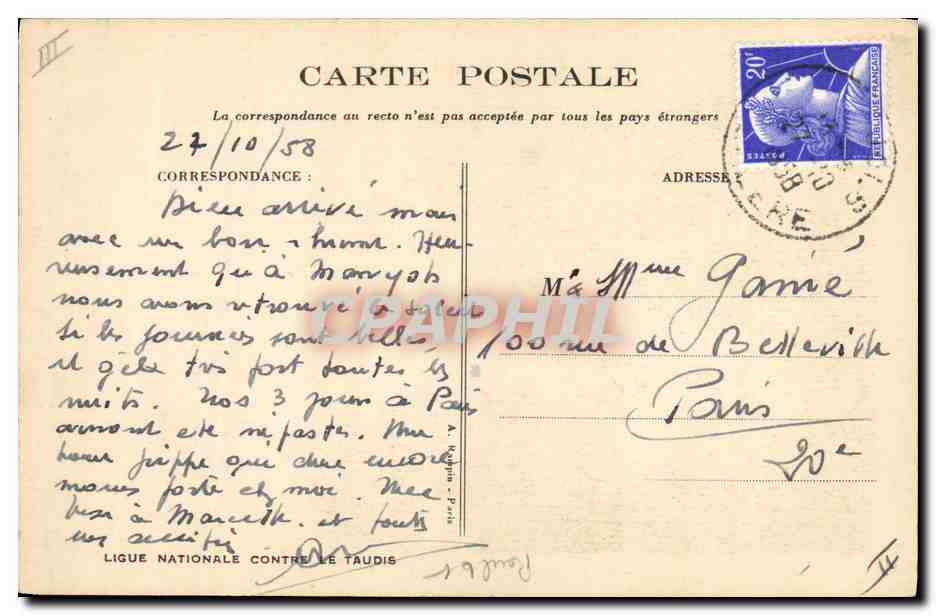 III
CARTE POSTALE
La correspondance au recto n'est pas acceptée par tous les pays étrangers
20F
POSTES
REPUBLIQUE FRANÇAISE
27/10/58
CORRESPONDANCE :
ADRESSE
Bien arrivé mais
avec un bon rhume. Heu-
reusement qu'à
nous avons retrouvé le soleil
Si les journées sont belles,
il gèle très fort toutes les
nuits. Nos 3 jours à Paris
auront été néfastes. Une
bonne grippe qui dure encore
moins forte chez moi. Mes
bises à Marcelle et toutes
nos amitiés
M & Mme Ganié
100 rue de Belleville
Paris
20e
CPAPHIL
A. Rampin - Paris
LIGUE NATIONALE CONTRE LE TAUDIS
II